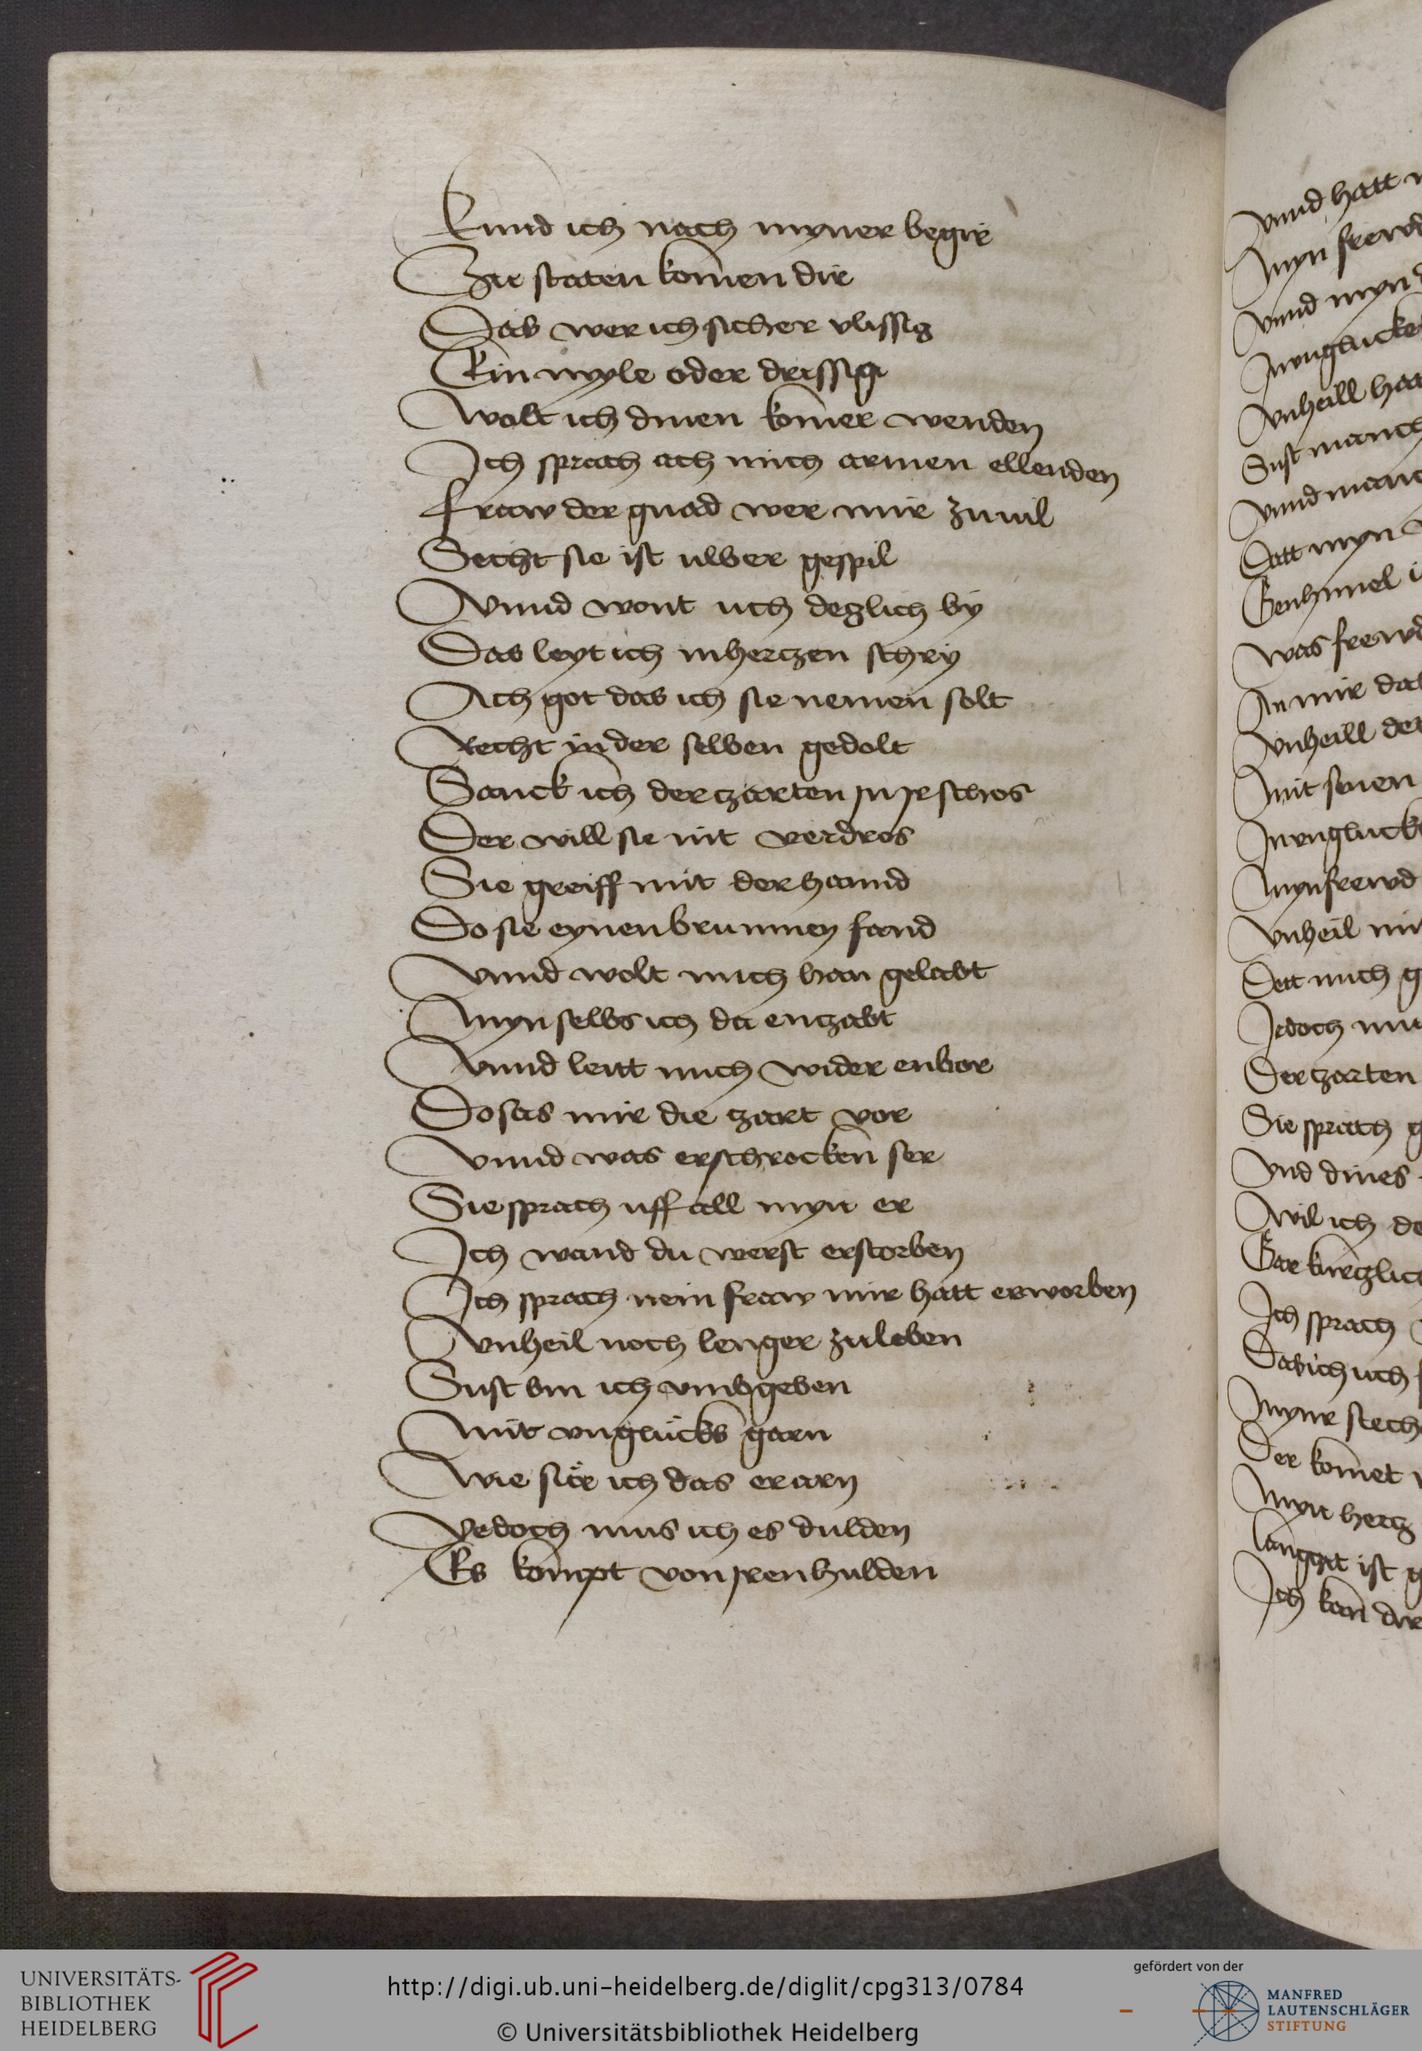 Kund ich nach myner begir
Zu staten komen dir
Das wer ich sicher vlissig
Ein myle oder drissig
Wolt ich dinen komer wenden
Ich sprach ach mich armen ellenden
Fraw der gnad wer mir zuuil
Secht sie ist uwer gespil
Vnnd wont uch deglich by
Das leyt ich inhertzen schry
Ach got das ich sie nemen solt
Recht in der selben gedolt
Sanck ich der zarten in ir schos
Der will sie nit verdros
Sie greiff mit der hannd
Do sie eynen brunnen fand
Vnnd wolt mich han gelabt
Myn selbs ich da entzabt
Vnnd leitt mich wider enbor
Do sas mir die zart vor
Vnnd was erschrocken ser
Sie sprach uff all myn er
Ich wand du werst erstorben
Ich sprach nein fraw mir hatt erworben
Vnheil noch lenger zuleben
Sust bin ich vmbgeben
Mit vnglucks garn
Wie sur ich das erarn
Yedoch mus ich es dulden
Es kompt von iren hulden
vnnd hatt
Myn frewd
vnnd myn
In vnglucke
Vnheill hat
Sust manch
Vnnd
Datt myn
Was frewd
An mir dat
Vnheill der
Mit sinen
In vngluck
Myn frewd
Vnheil
Dett mich
Iedoch
Der zarten
Sie sprach
Vnd dines
Wil ich
Gar kurtzlich
Ich sprach
Das ich uch
Der komet
Myn hertz
ist
Ich kan dir
UNIVERSITÄTS-
BIBLIOTHEK
HEIDELBERG
http://digi.ub.uni-heidelberg.de/diglit/cpg313/0784
© Universitätsbibliothek Heidelberg
gefördert von der
MANFRED
LAUTENSCHLÄGER
STIFTUNG